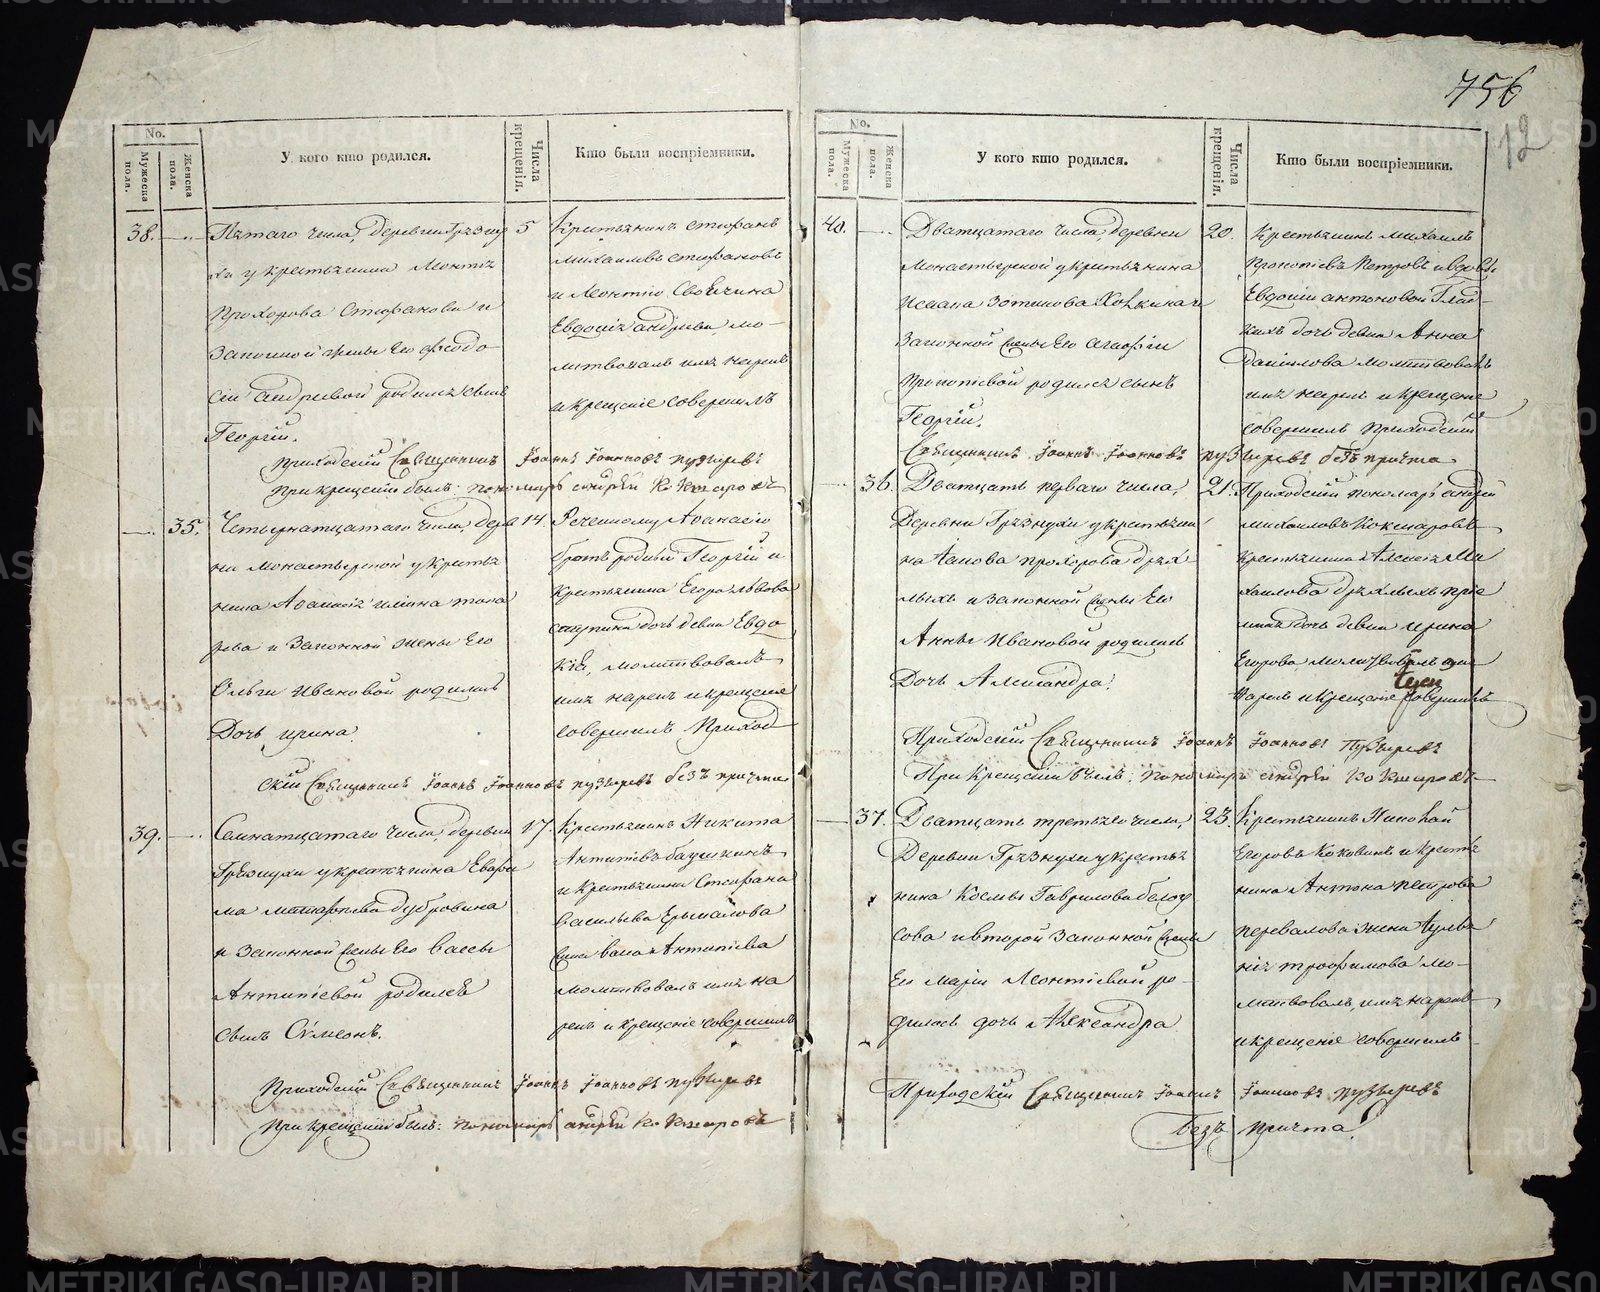 756
12
No.
Мужеска пола.
Женска пола.
У кого кто родился.
Числа крещенія.
Кто были воспріемники.
38.
Пятаго числа, деревни Грязну
хи у крестьянина
Прохорова Стефанова и
Законной жены его Феодо
сіи Андреевой родился сынъ
Георгій.
5
Крестьянинъ Стефанъ
Михаиловъ Стефановъ
и
Евдокія Андреева мо-
литвовалъ имя нарекъ
и крещеніе совершилъ
Приходскій Священникъ Іоаннъ Іоанновъ Пузыревъ
При крещеніи былъ: пономарь Андрей Кокшаровъ
35.
Четырнатцатаго числа, дерев
ни Монастырской у кресть
нина Афанасія
рева и Законной жены его
Ольги Ивановой родилась
Дочь Ирина
14.
Реченному Афанасію
братъ родный Георгій и
Крестьянина Егора Львова
дочь девка Евдо
кія, молитвовалъ
имя нарекъ и крещеніе
совершилъ Приход
скій Священникъ Іоаннъ Іоанновъ Пузыревъ безъ причта
39.
Семнатцатаго числа, деревни
Грязнухи у крестьянина Евфи
ма Дубровина
и Законной жены его Вассы
Антипіевой родился
сынъ Симеонъ.
17.
Крестьянинъ Никита
Антипіевъ
и Крестьянина Стефана
Васильева Ермакова
жена Антипіева
молитвовалъ имя на
рекъ и крещеніе совершилъ
Приходскій Священникъ Іоаннъ Іоанновъ Пузыревъ
При крещеніи былъ: пономарь Андрей Кокшаровъ
No.
Мужеска пола.
Женска пола.
У кого кто родился.
Числа крещенія.
Кто были воспріемники.
40.
Дватцатаго числа, деревни
Монастырской у крестьянина
Зотикова
Законной жены его Агафіи
Прокопіевой родился сынъ
Георгій.
20.
Крестьянинъ Михаилъ
Прокопіевъ Петровъ и вдовы
Евдокіи Антоновой Глад-
кихъ дочь девка Анна
Данилова молитвовалъ
имя нарекъ и крещеніе
совершилъ Приходскій
Священникъ Іоаннъ Іоанновъ Пузыревъ безъ причта
36.
Дватцать перваго числа,
Деревни Грязнухи у крестьяни
на Іакова Прохорова Дрях-
лыхъ и законной жены его
Анны Ивановой родилась
Дочь Александра.
21.
Приходскій пономарь Андрей
Михаиловъ Кокшаровъ
Крестьянина Алексія Ми
хаилова Дряхлыхъ
дочь девка Ирина
Егорова молитвовалъ имя
нарекъ и крещеніе совершилъ
Приходскій Священникъ Іоаннъ Іоанновъ Пузыревъ
При крещеніи былъ: пономарь Андрей Кокшаровъ
37.
Дватцать третьяго числа,
Деревни Грязнухи у кресть
нина Космы Гаврилова Белоу
сова и второй законной жены
его Маріи Леонтіевой ро-
дилась дочь Александра
23.
Крестьянинъ Николай
Егоровъ Коковинъ и кресть
нина Антона Петрова
Перевалова жена Акули
нія Трофимова мо-
литвовалъ, имя нарекъ
и крещеніе совершилъ
Приходскій Священникъ Іоаннъ Іоанновъ Пузыревъ
Безъ причта
METRIKI.GASO-URAL.RU